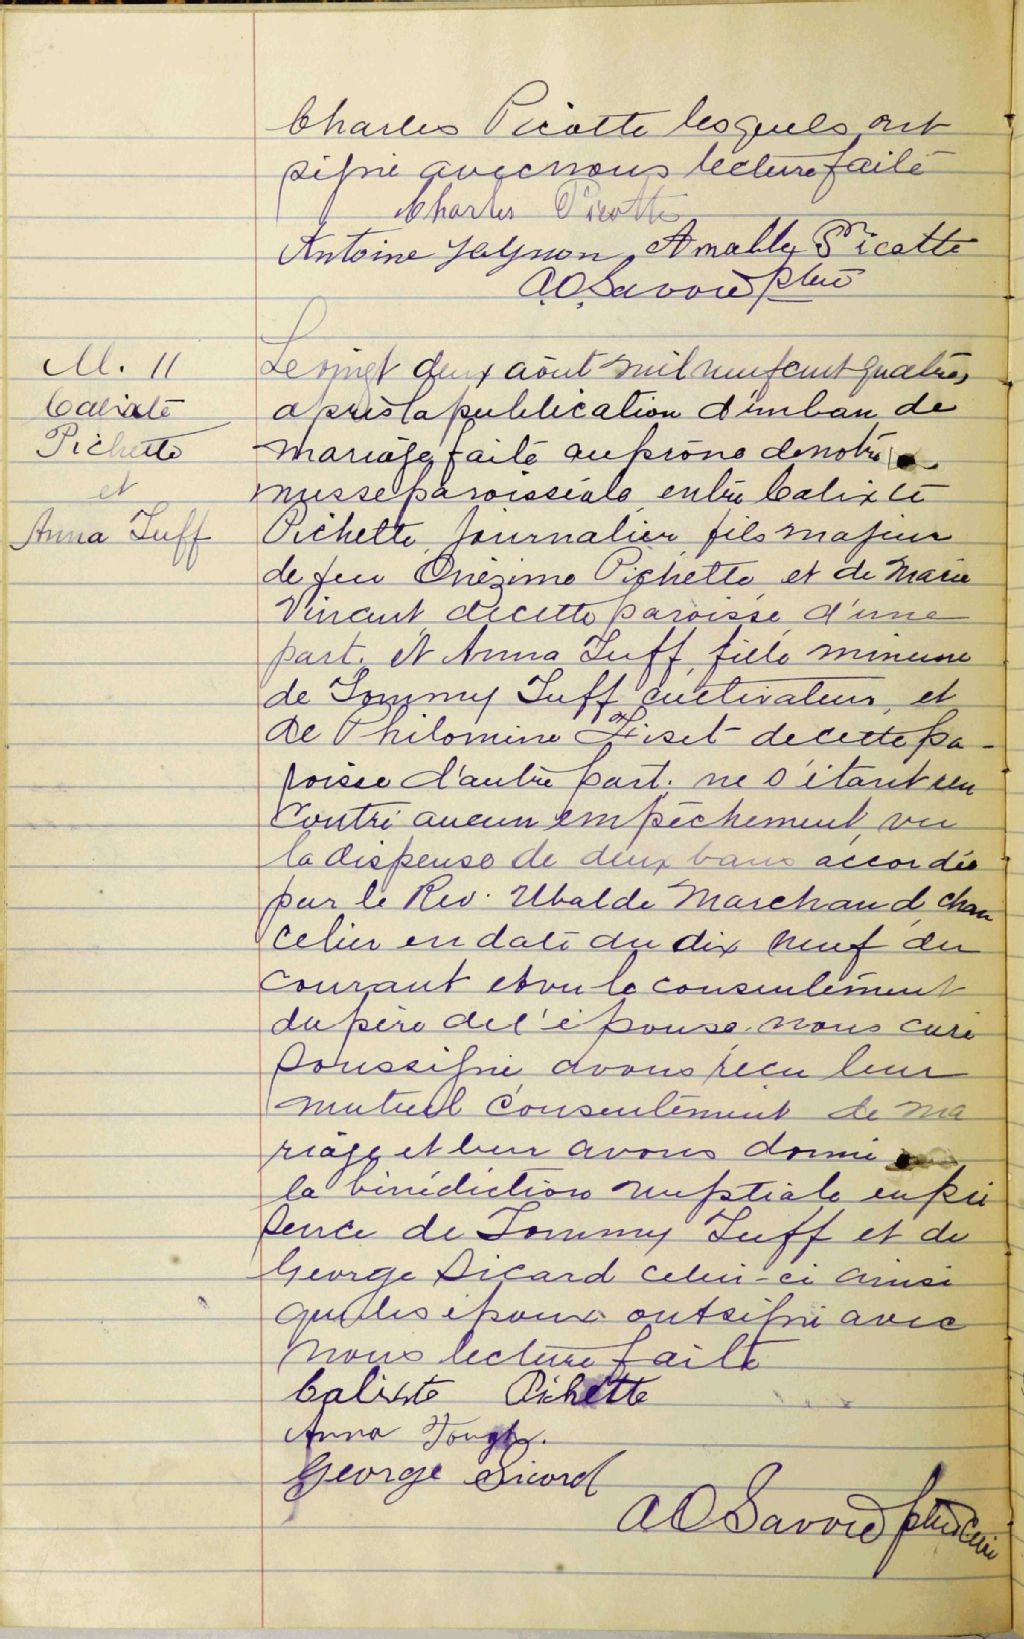 Charles Picotte lesquels ont
signé avec nous lecture faite
Charles Picotte
Antoine Gagnon Amable Picotte
A.O. Savoie ptre
M. 11
Calixte
Pichette
et
Anna Tuff
Le vingt deux août mil neuf cent quatre,
après la publication d'un ban de
mariage faite au prône de notre
messe paroissiale, entre Calixte
Pichette, journalier, fils majeur
de feu Onézime Pichette et de Marie
Vincent, de cette paroisse, d'une
part, et Anna Tuff, fille mineure
de Tommy Tuff, cultivateur, et
de Philomine Fiset de cette pa-
roisse d'autre part; ne s'étant ren
contré aucun empêchement, vu
la dispense de deux bans accordée
par le Rev. Ubalde Marchand, chan
celier en date du dix neuf du
courant et vu le consentement
du père de l'épouse, nous curé
soussigné avons reçu leur
mutuel consentement de ma
riage et leur avons donné
la bénédiction nuptiale en pré
sence de Tommy Tuff et de
George Sicard celui-ci ainsi
que les époux ont signé avec
nous lecture faite
Calixte Pichette
Anna
George Sicord
A O Savoie ptre Curé